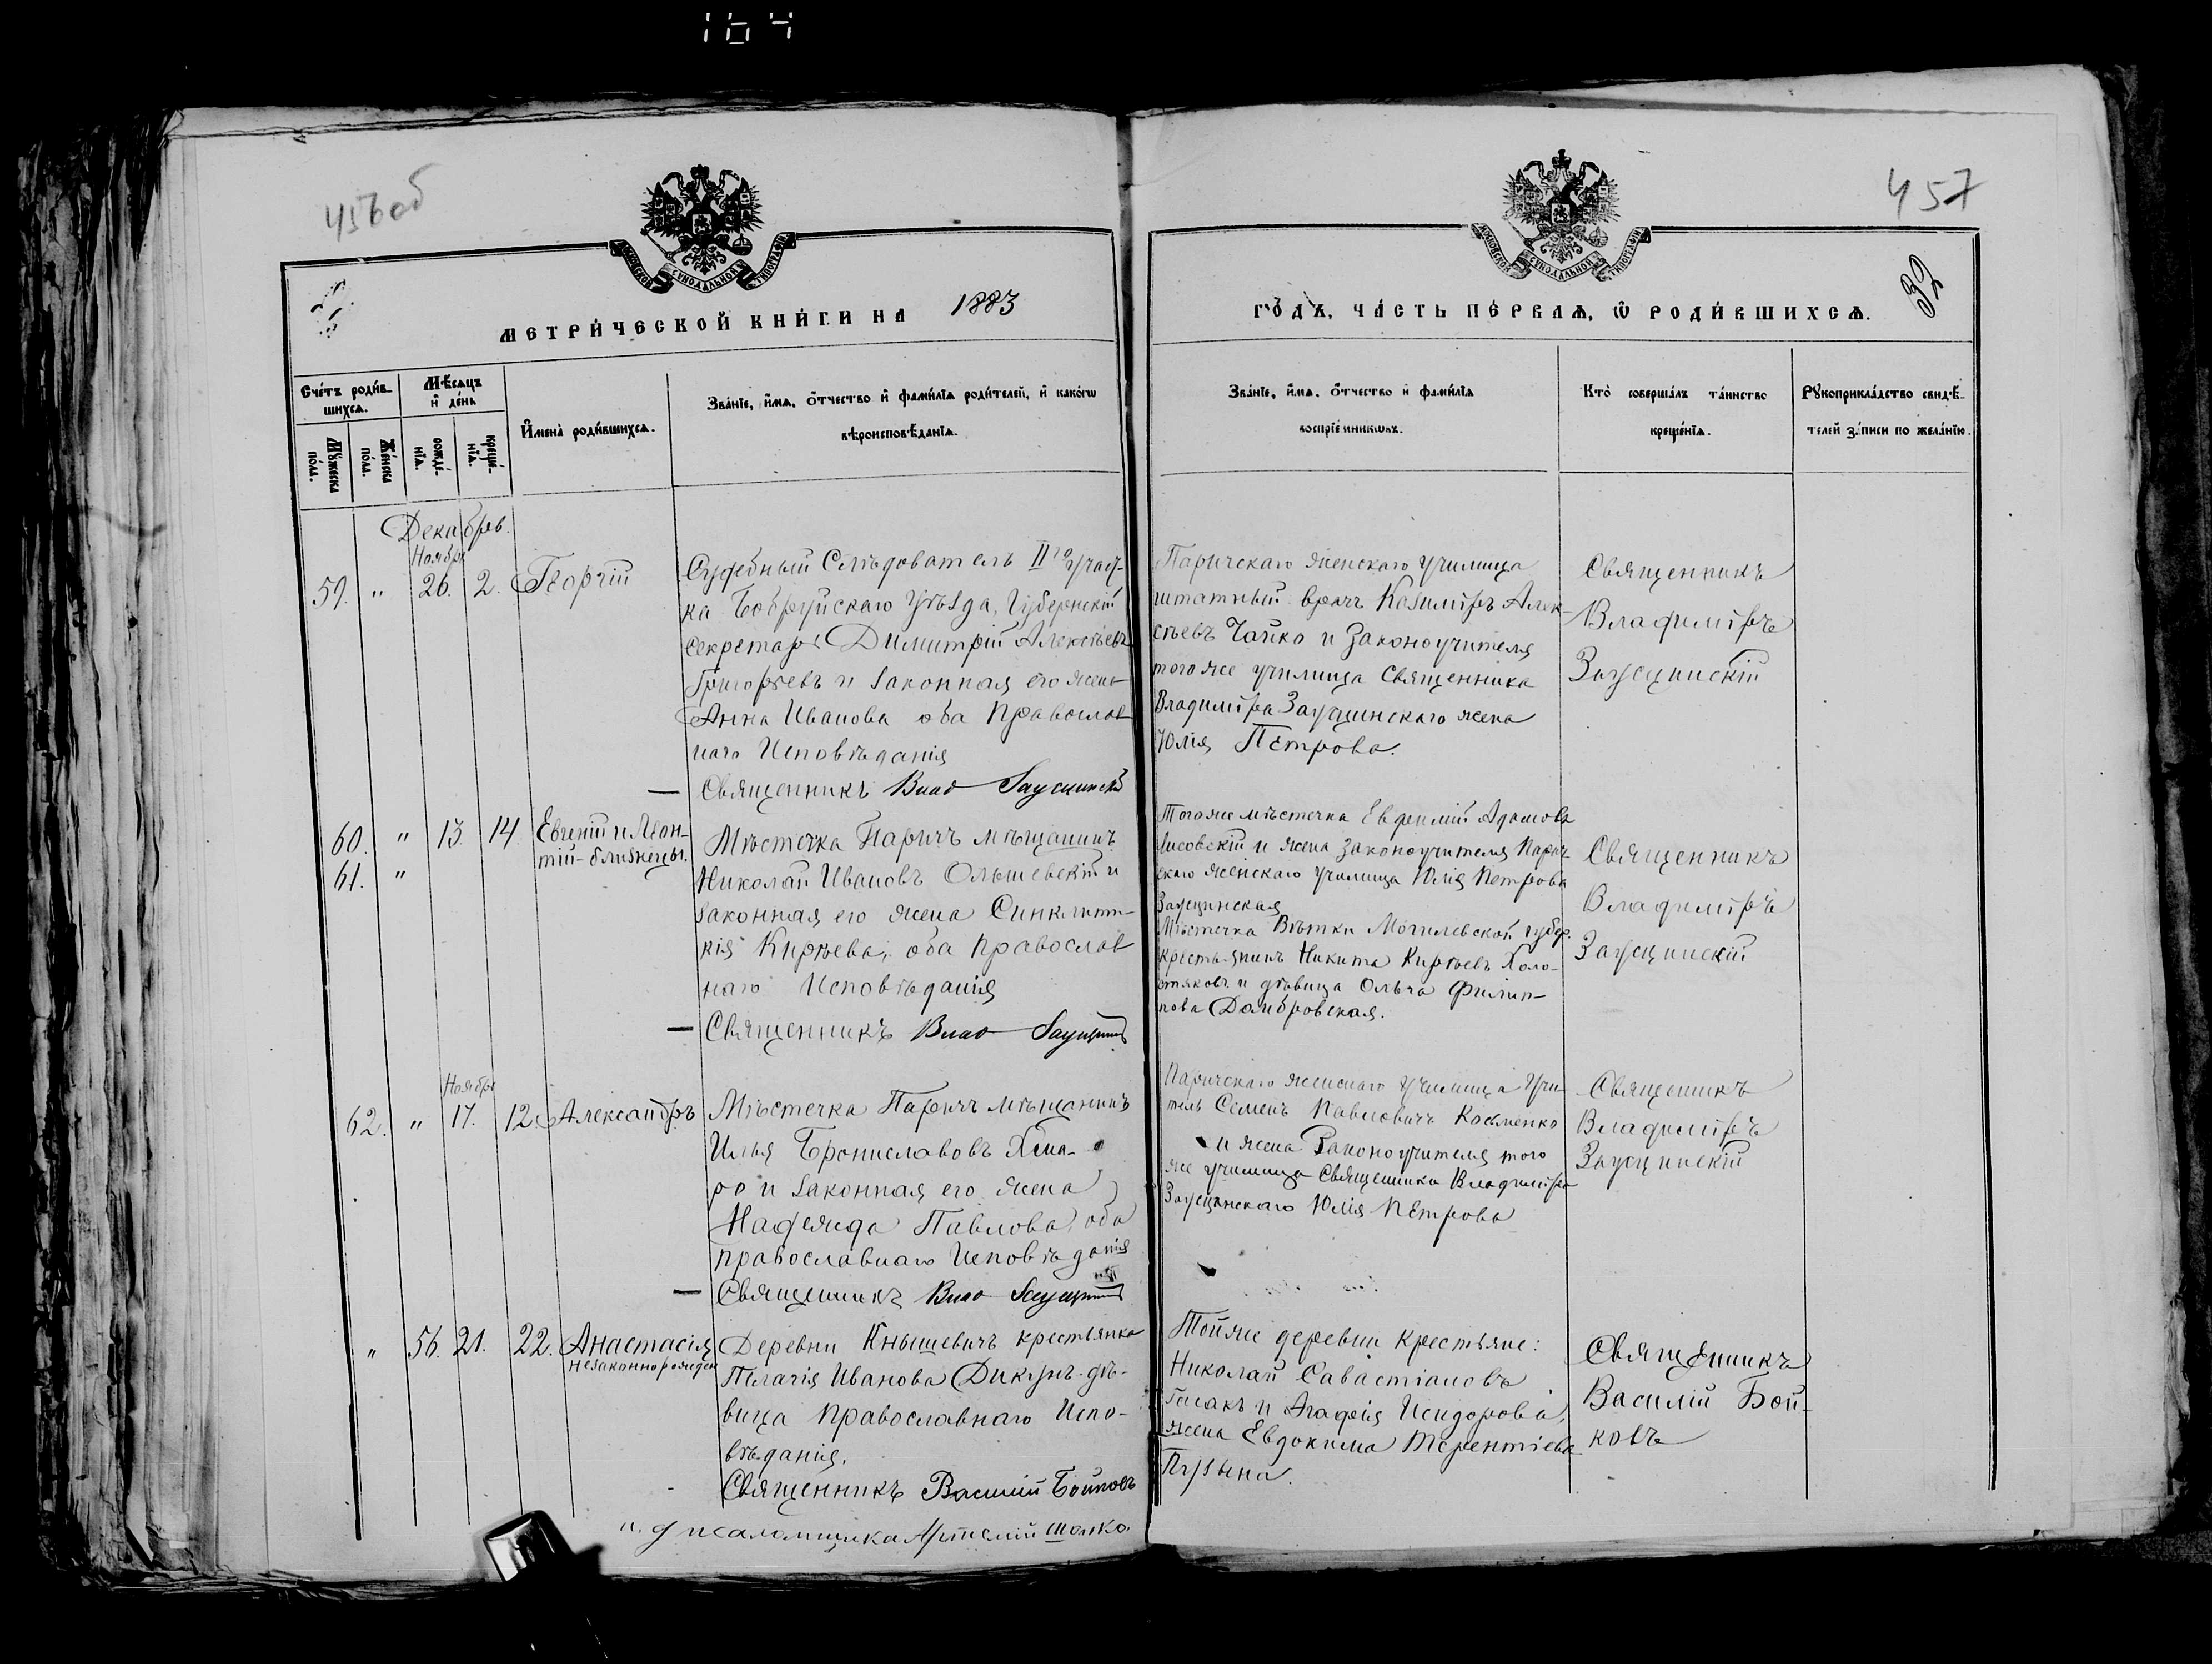 164
456 об
457
32
МОСКОВСКОЙ СѴНОДАЛЬНОЙ ТИПОГРАФІИ
МОСКОВСКОЙ СѴНОДАЛЬНОЙ ТИПОГРАФІИ
МЕТРИ́ЧЕСКОЙ КНИ́ГИ НА 1883
ГО́ДЪ, ЧА́СТЬ ПЕ́РВАѦ, Ѡ РОДИ́ВШИХСѦ.
Сче́тъ роди́в-
шихсѧ.
Мꙋ́жеска
по́ла.
Же́нска
по́ла.
Мѣ́сѧцъ
и҆ де́нь
рожде́-
нїѧ.
креще́-
нїѧ.
И҆мена̀ роди́вшихсѧ.
Зва́нїе, и҆́мѧ, ѻ҆́тчество и҆ фами́лїѧ роди́телей, и҆ како́гѡ
вѣроисповѣ́данїѧ.
Зва́нїе, и҆́мѧ, ѻ҆́тчество и҆ фами́лїѧ
воспрїе́мникѡвъ.
Кто̀ соверша́лъ та́инство
креще́нїѧ.
Рꙋкоприкла́дство свидѣ́-
телей за́писи по жела́нїю.
Декабрь.
Ноябр
59. " 26. 2. Георгій
Судебный Слѣдователь II го участ-
ка Бобруйскаго Уѣзда, Губернскій
Секретарь Димитрій Алексѣевъ
Григорьевъ и законная его жена
Анна Иванова оба Православ
наго Исповѣданія
Священникъ Влад Заусцинскій
Паричскаго женскаго училища
штатный врачъ Казиміръ Алек-
сѣевъ Чайко и Законоучителя
тогоже училища Священника
Владиміра Заусцинскаго жена
Юлія Петрова.
Священникъ
Владиміръ
Заусцинскій
60. " 13. 14. Евгеній и Леон-
61. " тій-близнецы.
Мѣстечка Паричъ мѣщанинъ
Николай Ивановъ Ольшевскій и
законная его жена Синклити-
кія Кирѣева, оба Православ
наго Исповѣданія
Священникъ Влад Заусцинскій
Тогоже мѣстечка Евфимій Адамовъ
Лисовскій и жена законоучителя Парич-
скаго женскаго училища Юлія Петрова
Заусцинская
Мѣстечка Вѣтки Могилевской губер.
крестьянинъ Никита Кирѣевъ Холо-
стяковъ и дѣвица Ольга Филип-
пова Домбровская.
Священникъ
Владиміръ
Заусцинскій
Ноябр
62. " 17. 12. Александръ
Мѣстечка Паричъ мѣщанинъ
Илья Брониславовъ
и законная его жена
Надежда Павлова, оба
православнаго Исповѣданія
Священникъ Влад Заусцинскій
Паричскаго женскаго училища Учи-
тель Семенъ Павловичъ Косменко
и жена Законоучителя того
же училища Священника Владиміра
Заусцинскаго Юлія Петрова
Священникъ
Владиміръ
Заусцинскій
" 56. 21. 22. Анастасія
незаконнорожден
Деревни Кнышевичъ крестьянка
Пелагія Иванова Дикунъ-дѣ-
вица Православнаго Испо-
вѣданія.
Священникъ Василій Бойковъ
и. д псаломщика Артемій
Тойже деревни крестьяне:
Николай Савастіановъ
и Агафія Исидорова,
жена Евдокима Терентіева
Пузына.
Священникъ
Василій Бой-
ковъ